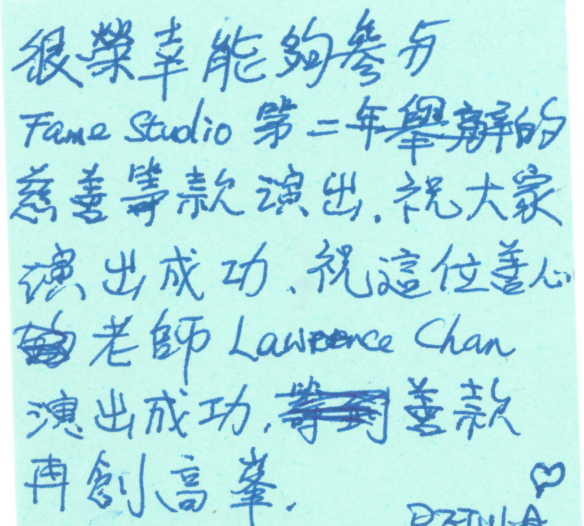 很榮幸能夠參与
Fame Studio 第二年舉辦的
慈善筹款演出,祝大家
演出成功、祝這位善心
老師 Lawrence Chan
演出成功,善款
再創高峯.